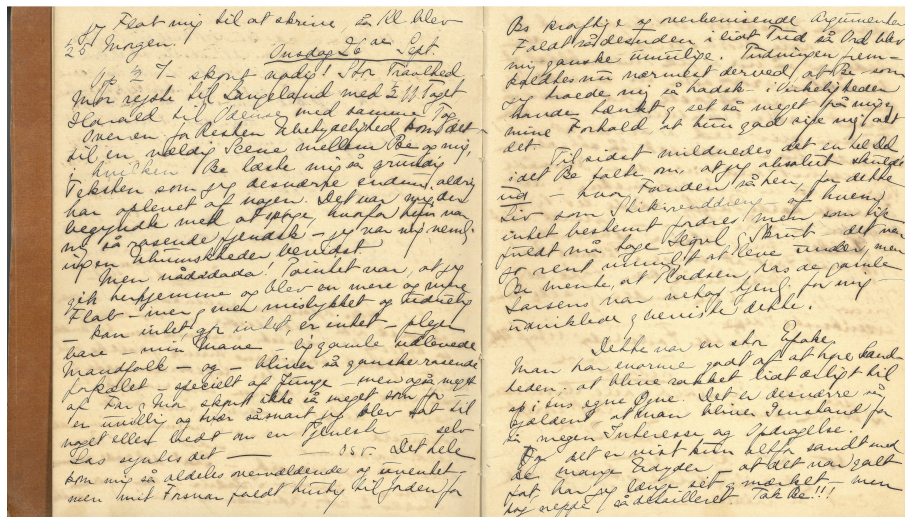 jeg Flat mig til at skrive så Kl blev
½5 Morgen.
Onsdag 26 Sept.
Op ½ 7 - skønt nødig! Stor Travlhed
Mor rejste til Langeland med ½ 11 Toget
Harald til Odense med samme Tog
Over en for Resten Ubetydelighed kom det
til en vældig Scene mellem Be og mig,
i hvilken Be læste mig så grundig
Teksten som jeg desværre endnu aldrig
har oplevet af nogen. Det var mig der
begyndte med at spørge, hvorfor hun var
mig så rasende fjendsk - jeg var mig nemlig
ingen bevidst.
Men nådada! Pointet var, at jeg
gik herhjemme og blev en mere og mere
Flab - mer og mer mislykket og
- kan intet, gør intet, er intet - plejer
bare - min Mave - ligegamle
Mandfolk - og - bliver så ganske rasende
forkælet - specielt af Junge - men også meget
af Far, Mor skønt ikke så meget som før -
er uvillig og tvær såsnart jeg blev sat til
noget eller bedt om en Tjeneste selv
Las synles det - - o.s.v. Det hele
kom mig så aldeles overvældende og uventet -
men mit Forsvar faldt hurtig til Jorden for
Bes kraftige og overbevisende Argumenter
Faldt så desuden i lidt Tud så Ord blev
mig ganske umulige. Tudningen frem-
kaldtes nu nærmest derved, at Be som
jeg troede mig så hadsk - i Virkeligheden
havde tænkt og set så meget på mig og
mine Forhold, at hun gad sige mig alt
det.
Til sidst mildnedes det en hel Del
idet Be talte om at jeg absolut skulde
ud - hvor Fanden så hen, for dette
Liv som - og hvem
intet bestemt fordres men som lige
fuldt må tage Skovl, Skrut det var
jo rent umuligt at leve under, men
Be mente, at Pladsen hos de gamle
Larsens var netop Ting for mig -
udviklede og beviste dette.
Dette var en stor Epoke
Man har enorme godt af at høre Sand-
heden. at blive rakket lidt ærligt til
op i sine egne Øjne. Det er desværre så
sjældent at man bliver Genstand for
så megen Interesse og Opdragelse.
For det er vist kun altfor sandt med
de mange - at det var galt
fat, har jeg længe set og mærket - men
dog neppe så detailleret. Tak Be!!!